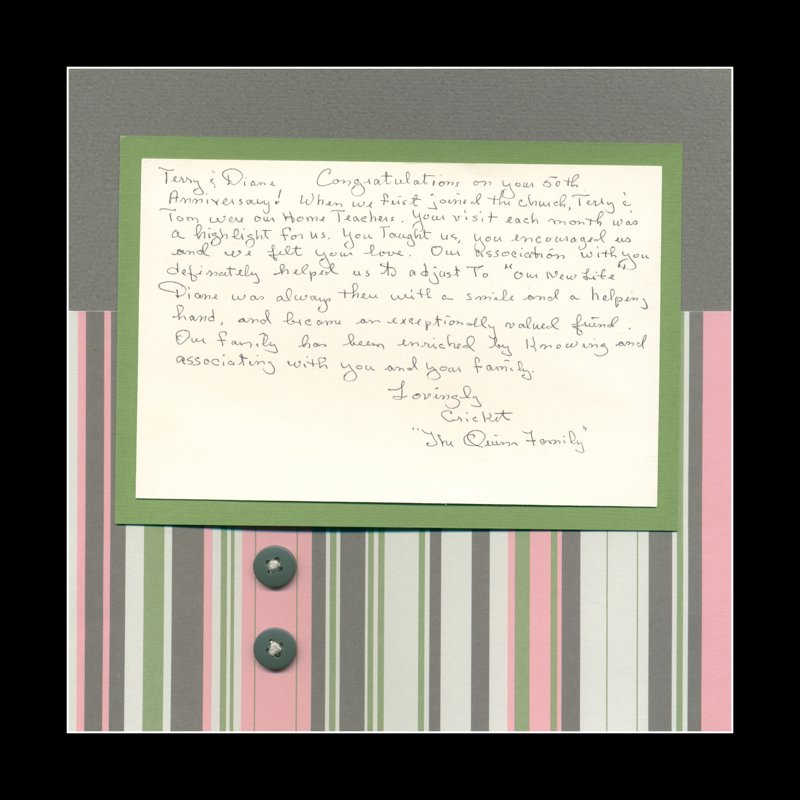 Terry & Diane Congratulations on your 50th
Anniversary! When we first joined the church, Terry &
Tom were our Home Teachers. Your visit each month was
a highlight for us. You Taught us, you encouraged us
and we felt your love. Our association with you
definately helped us to adjust To "Our New Life"
Diane was always there with a smile and a helping
hand, and became an exceptionally valued friend.
Our family has been enriched by Knowing and
associating with you and your family.
Lovingly
Cricket
"The Quinn Family"